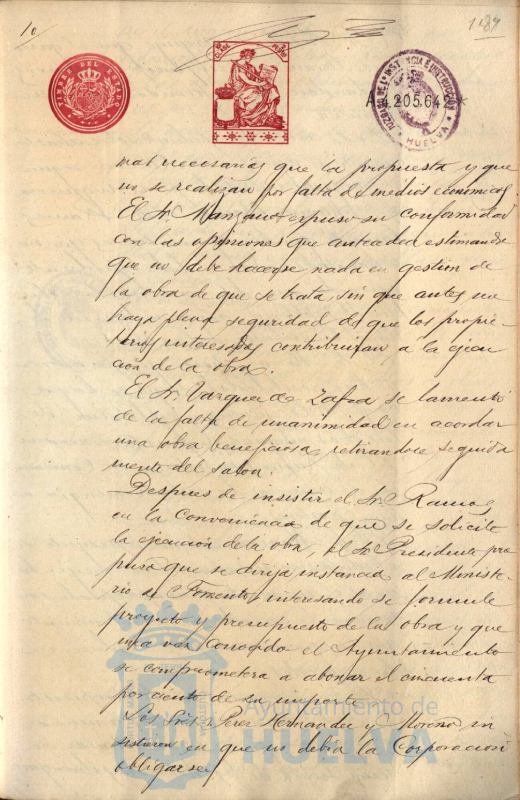 10
189
TIMBRE DEL ESTADO
A4.205.642*
JUZGADO DE 1ª INSTANCIA E INSTRUCCION
HUELVA
mas necesarias que la propuesta y que
no se realizan por falta de medios económicos
El Sr. Manzano expuso su conformidad
con las opiniones que anteceden estimando
que no debe hacerse nada en gestión de
la obra de que se trata, sin que antes se
haya plena seguridad de que los propie-
tarios interesados contribuirán a la ejecu-
ción de la obra.
El Sr. Vazquez de Zafra se lamentó
de la falta de unanimidad en acordar
una obra beneficiosa, retirandose seguida
mente del salon.
Despues de insistir el Sr. Ramos
en la conveniencia de que se solicite
la ejecución de la obra, el Sr. Presidente pro
puso que se dirija instancia al Ministe-
rio de Fomento, interesando se formule
proyecto y presupuesto de la obra y que
una vez conocido el Ayuntamiento
se comprometera a abonar el cincuenta
por ciento de su importe.
Los Sres. Perez Hernandez y Moreno in
sistieron en que no debia la Corporación
obligarse
Ayuntamiento de
HUELVA